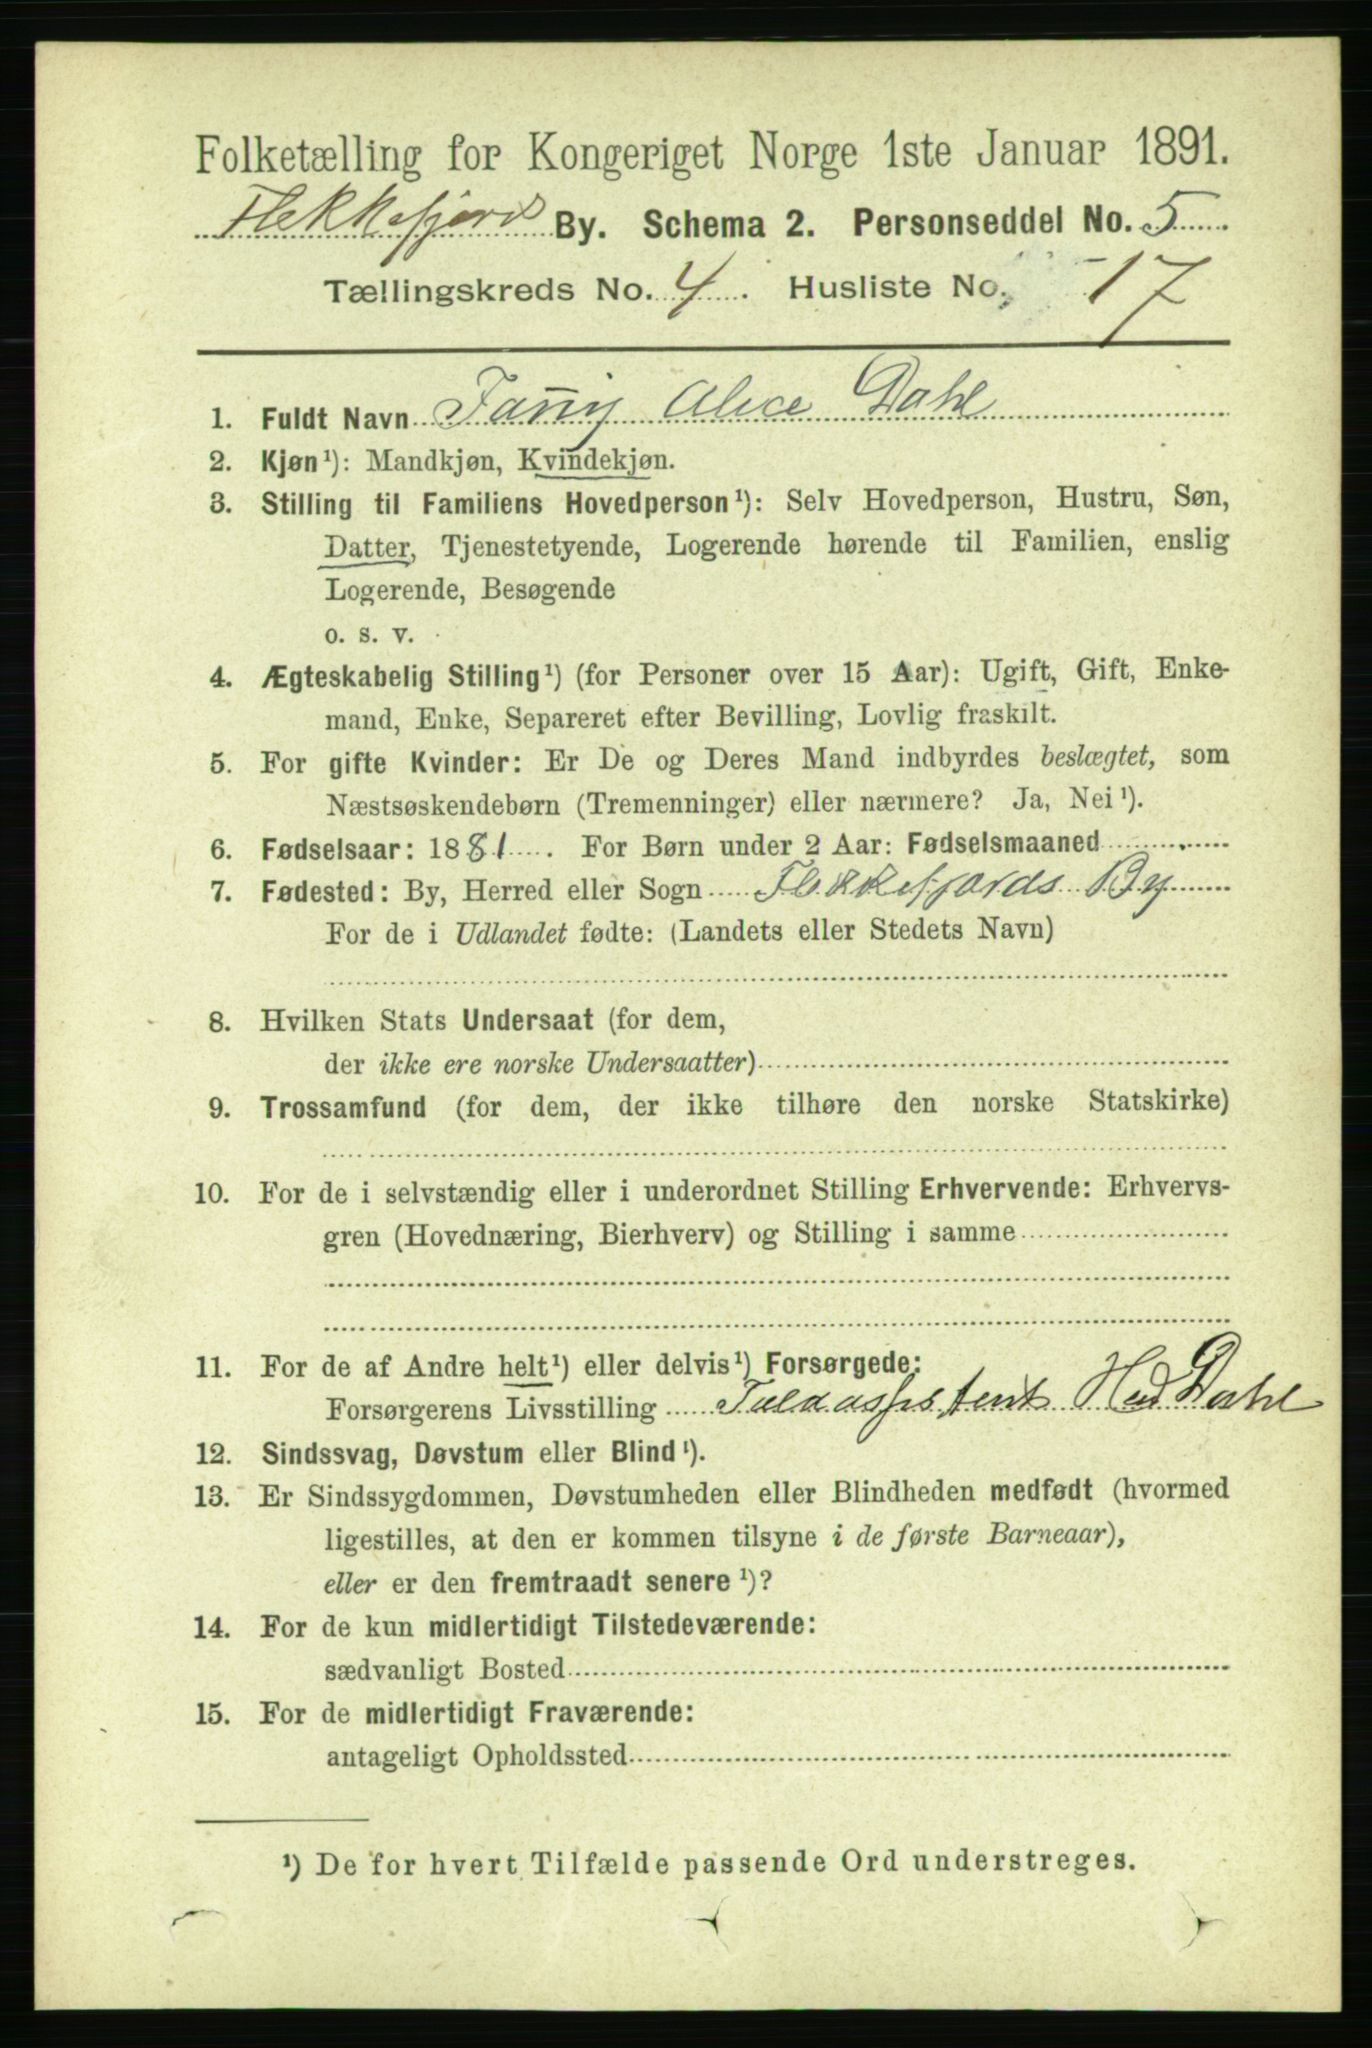 Folketælling for Kongeriget Norge 1ste Januar 1891.
Flekkefjord By. Schema 2. Personseddel No. 5
Tællingskreds No. 4. Husliste No. 17
1. Fuldt Navn Fan̄y Alice Dahl
2. Kjøn¹): Mandkjøn, Kvindekjøn.
3. Stilling til Familiens Hovedperson¹): Selv Hovedperson, Hustru, Søn,
Datter, Tjenestetyende, Logerende hørende til Familien, enslig
Logerende, Besøgende
o. s. v.
4. Ægteskabelig Stilling¹) (for Personer over 15 Aar): Ugift, Gift, Enke-
mand, Enke, Separeret efter Bevilling, Lovlig fraskilt.
5. For gifte Kvinder: Er De og Deres Mand indbyrdes beslægtet, som
Næstsøskendebørn (Tremenninger) eller nærmere? Ja, Nei¹).
6. Fødselsaar: 1881. For Børn under 2 Aar: Fødselsmaaned
7. Fødested: By, Herred eller Sogn Flekkefjords By
For de i Udlandet fødte: (Landets eller Stedets Navn)
8. Hvilken Stats Undersaat (for dem,
der ikke ere norske Undersaatter)
9. Trossamfund (for dem, der ikke tilhøre den norske Statskirke)
10. For de i selvstændig eller i underordnet Stilling Erhvervende: Erhvervs-
gren (Hovednæring, Bierhverv) og Stilling i samme
11. For de af Andre helt¹) eller delvis¹) Forsørgede:
Forsørgerens Livsstilling Toldassistent Dahl
12. Sindssvag, Døvstum eller Blind¹).
13. Er Sindssygdommen, Døvstumheden eller Blindheden medfødt (hvormed
ligestilles, at den er kommen tilsyne i de første Barneaar),
eller er den fremtraadt senere¹)?
14. For de kun midlertidigt Tilstedeværende:
sædvanligt Bosted
15. For de midlertidigt Fraværende:
antageligt Opholdssted
¹) De for hvert Tilfælde passende Ord understreges.